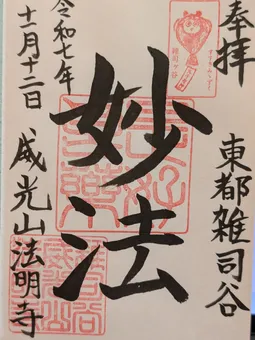 奉拝
雑司ヶ谷
東都雑司谷
妙法
令和七年
十一月十二日
威光山法明寺